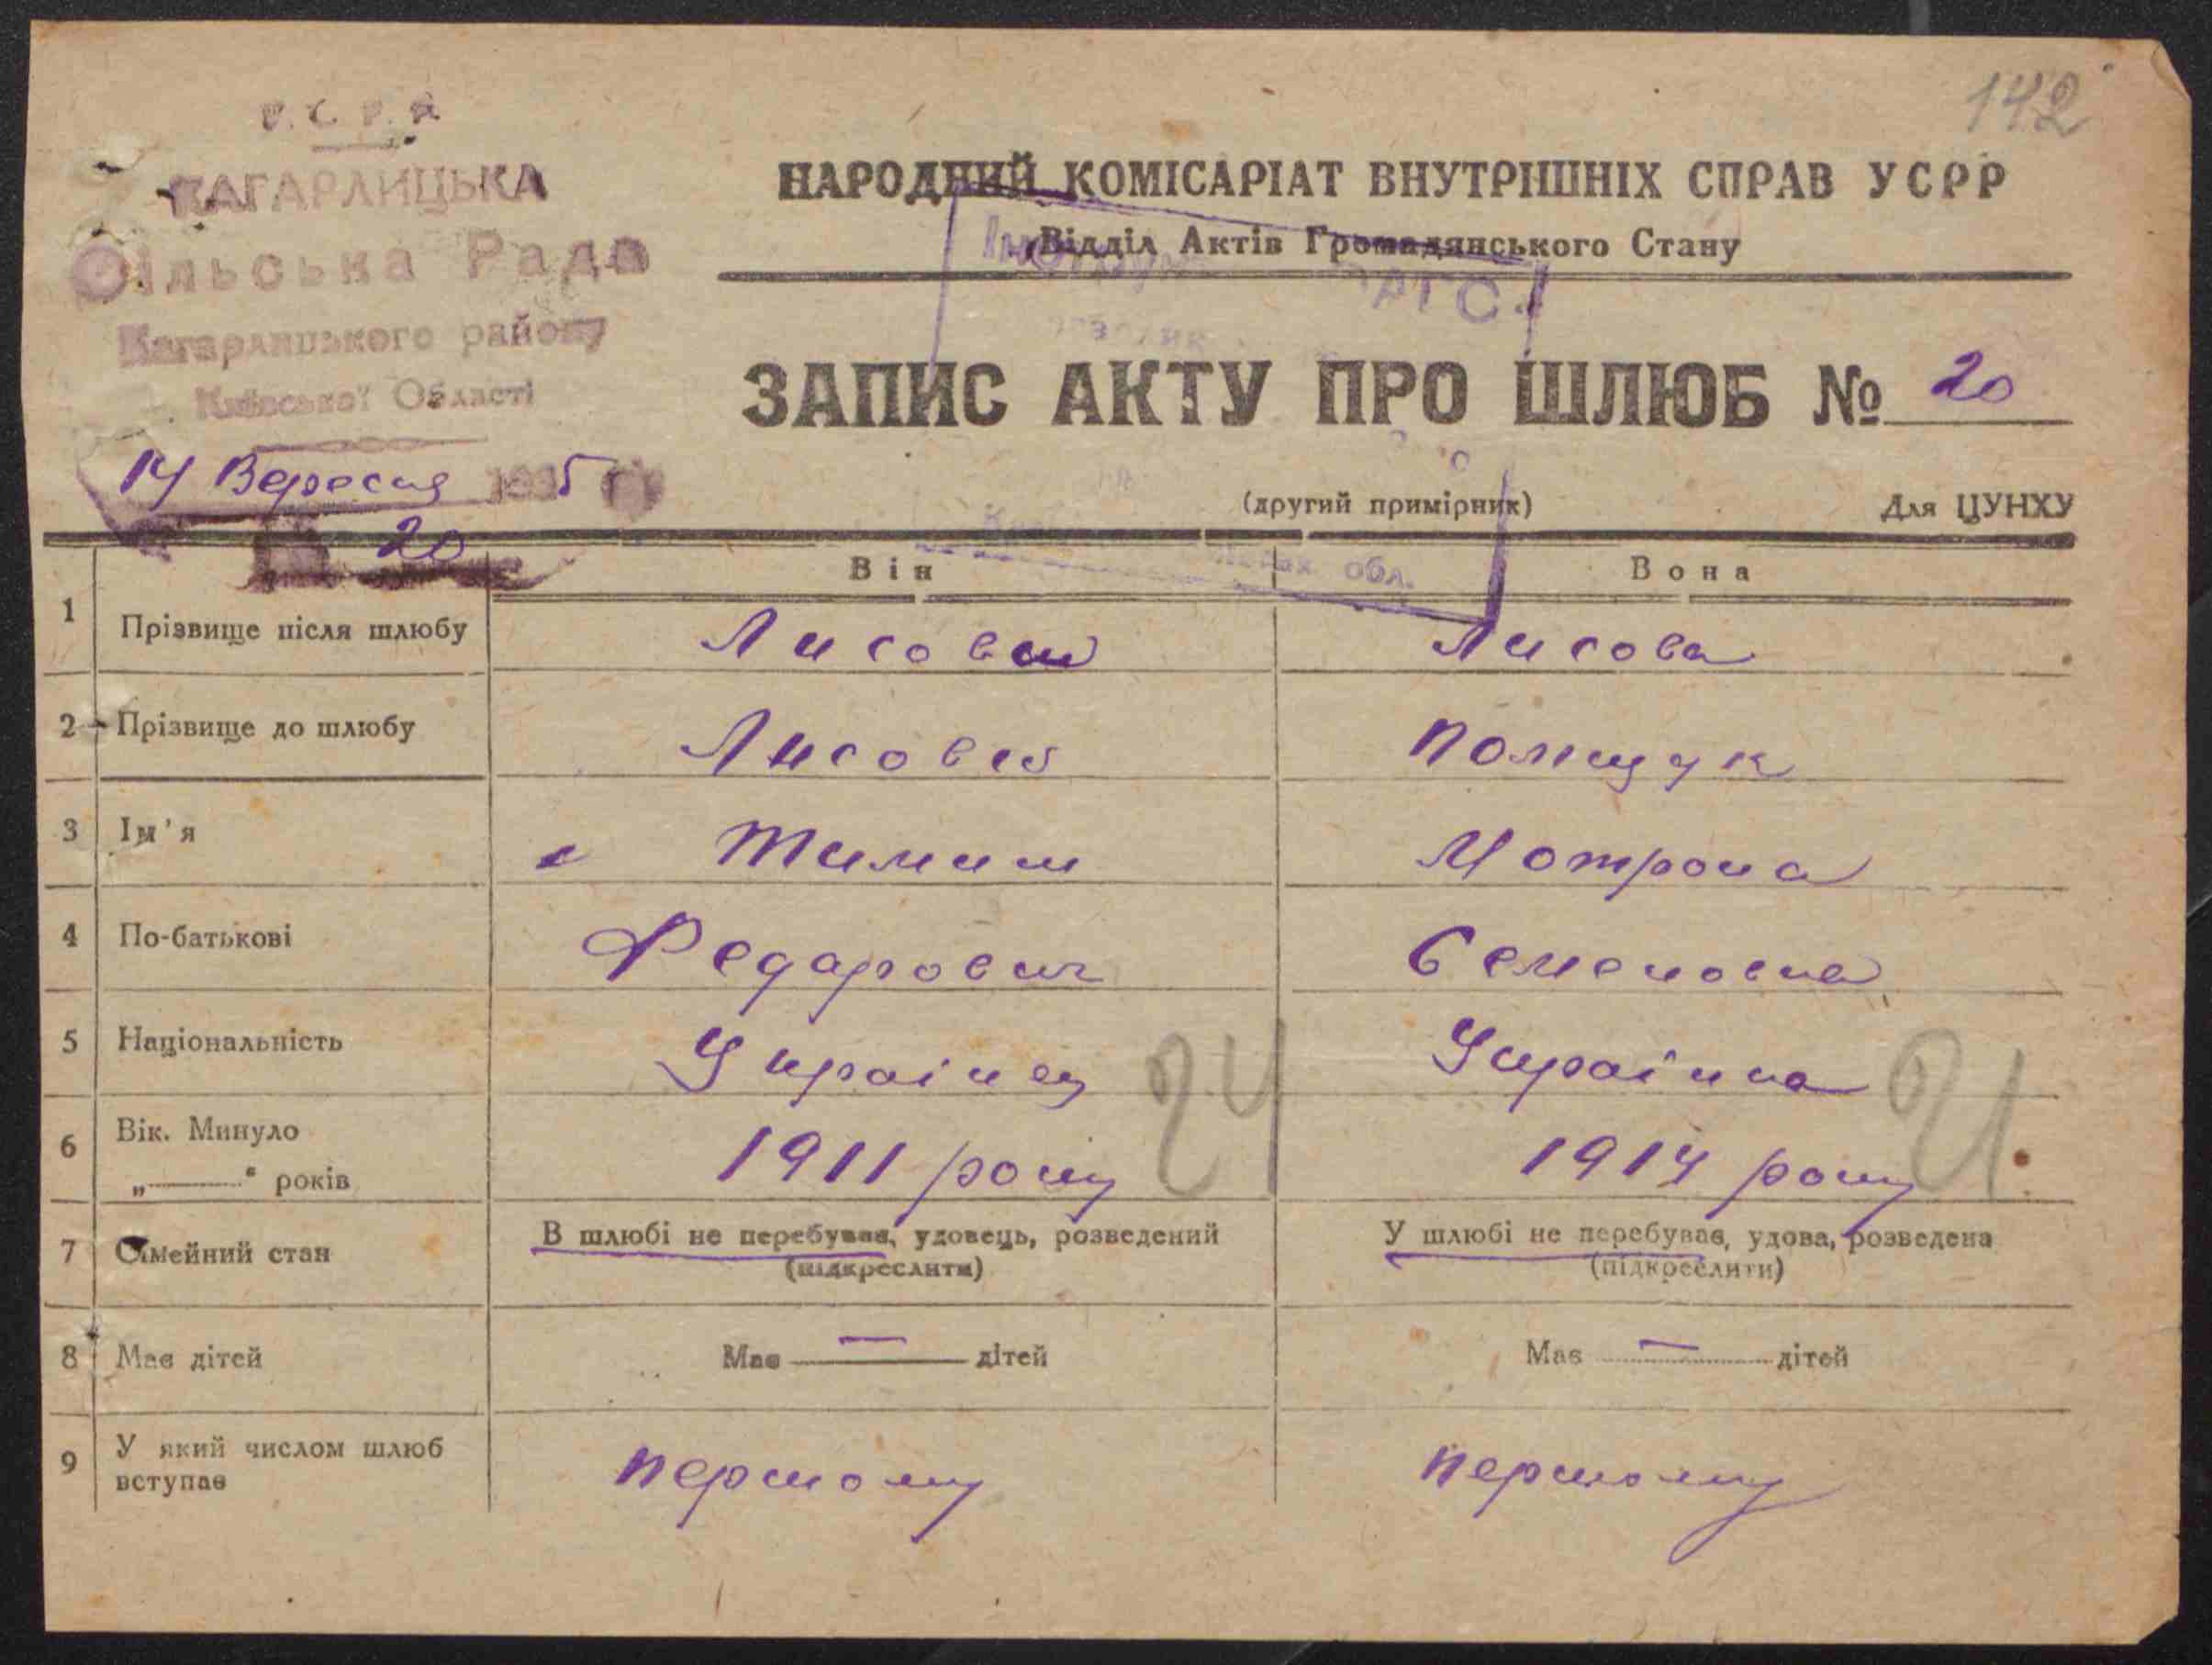 142
У.С.Р.Р.
КАГАРЛИЦЬКА
Сільська Рада
Кагарлицького району
Київської Області
14 Вересня 1935
20
НАРОДНИЙ КОМІСАРІАТ ВНУТРІШНІХ СПРАВ УСРР
Відділ Актів Громадянського Стану
ЗАГС
ЗАПИС АКТУ ПРО ШЛЮБ № 20
(другий примірник) Для ЦУНХУ
обл.
Він Вона
1 Прізвище після шлюбу Лисовий Лисова
2 Прізвище до шлюбу Лисовий Полищук
3 Ім'я Тимиш Мотрона
4 По-батькові Федарович Семеновна
5 Національність Украінец Украінка
24 21
6 Вік. Минуло
„ — " років 1911 року 1914 року
7 Сімейний стан В шлюбі не перебував, удовець, розведений У шлюбі не перебував, удова, розведена
(підкреслити) (підкреслити)
8 Має дітей Має — дітей Має — дітей
9 У який числом шлюб
вступав першому першому